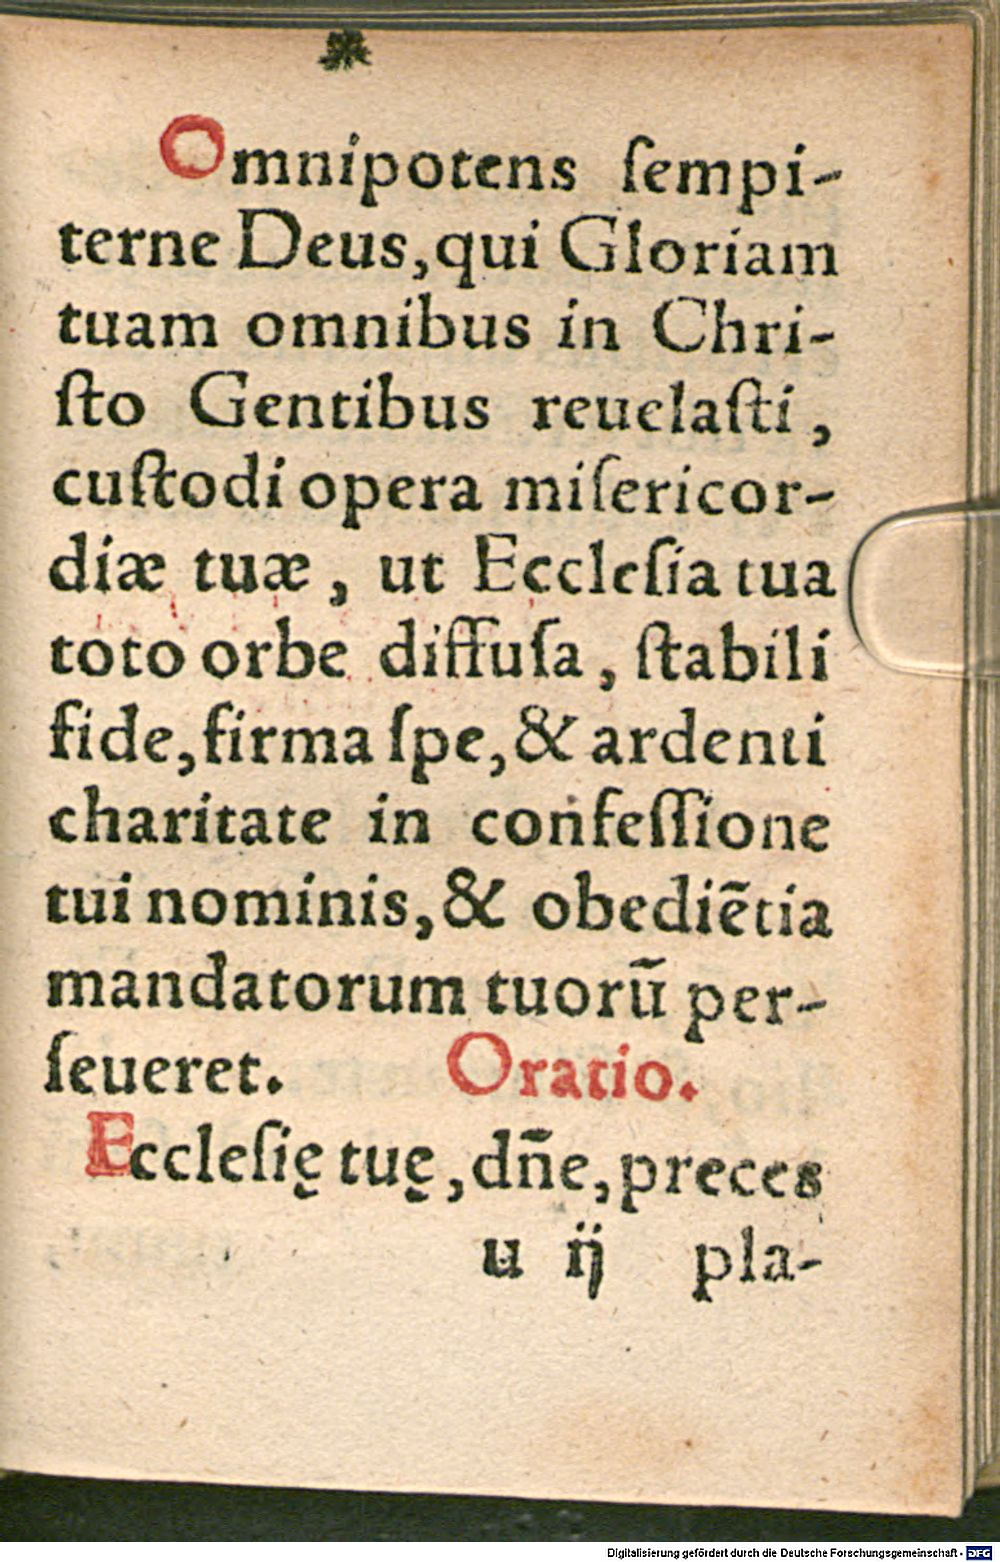 Omnipotens ſempi-
terne Deus, qui Gloriam
tuam omnibus in Chri-
ſto Gentibus reuelaſti,
cuſtodi opera miſericor-
diæ tuæ, ut Eccleſia tua
toto orbe diffuſa, ſtabili
fide, firma ſpe, & ardenti
charitate in confeſſione
tui nominis, & obediẽtia
mandatorum tuorũ per-
ſeueret. Oratio.
Eccleſię tuę, dñe, preces
u ij pla-
Digitalisierung gefördert durch die Deutsche Forschungsgemeinschaft - DFG